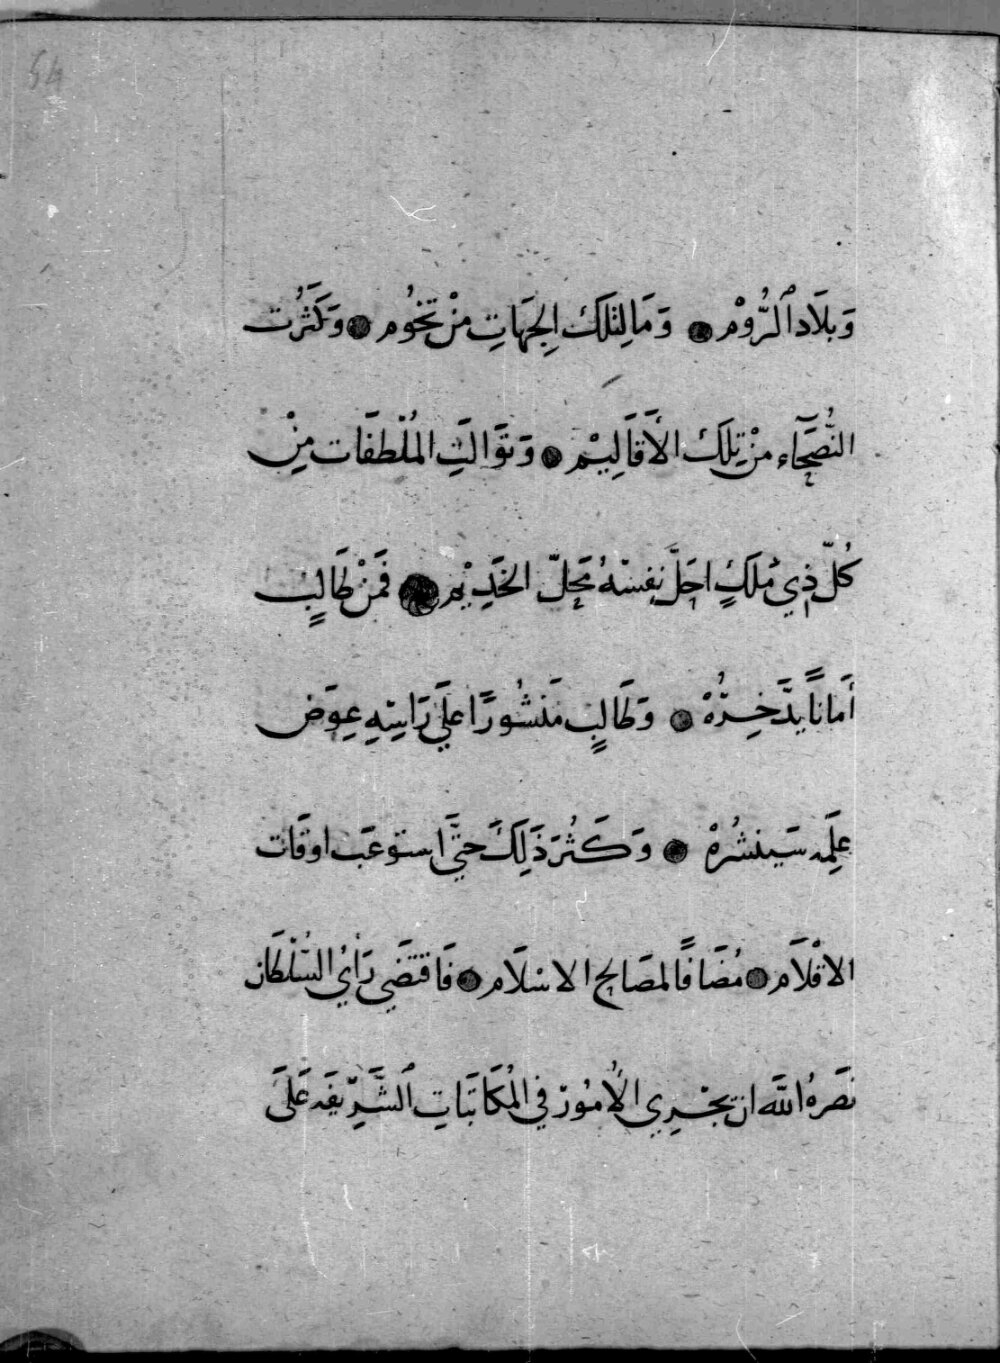 54
وَبِلَادِ ٱلرُّوْمْ ● وَمَا لِتِلْكَ الجِهَاتِ مِنْ تُخُوُمْ ● وَكَثُرَت
النُّصَحَآء مِنْ تِلكَ الأَقَالِيْم ● وَتَوَّالَتِ المُلْطفَات مِنْ
كُلّ ذِي مُلكٍ احَلَّ نفسَهُ مَحِلّ الخَدِيْم ● فَمَنْ طَالِبٍ
أَمَانًا يدَّخِرُهْ ● وَطَالِبٍ مَنشُورًا عَلَي رَاسِهِ عِوَض
عِلَمِه سَينشُرُهْ ● وَكَثُرَ ذَلِكَ حَتَّي استوعَبَ اوقَات
الاقْلَام ● مُضَافًا لمصَالِح الاسْلَام ● فَاقتَضَي رَأيُ السُّلْطَان
نصَرهُ اللَّه ان تجْرِي الأُمُوْر في المُكَاتَبَاتِ ٱلشَّرِيفَه عَلَىَ